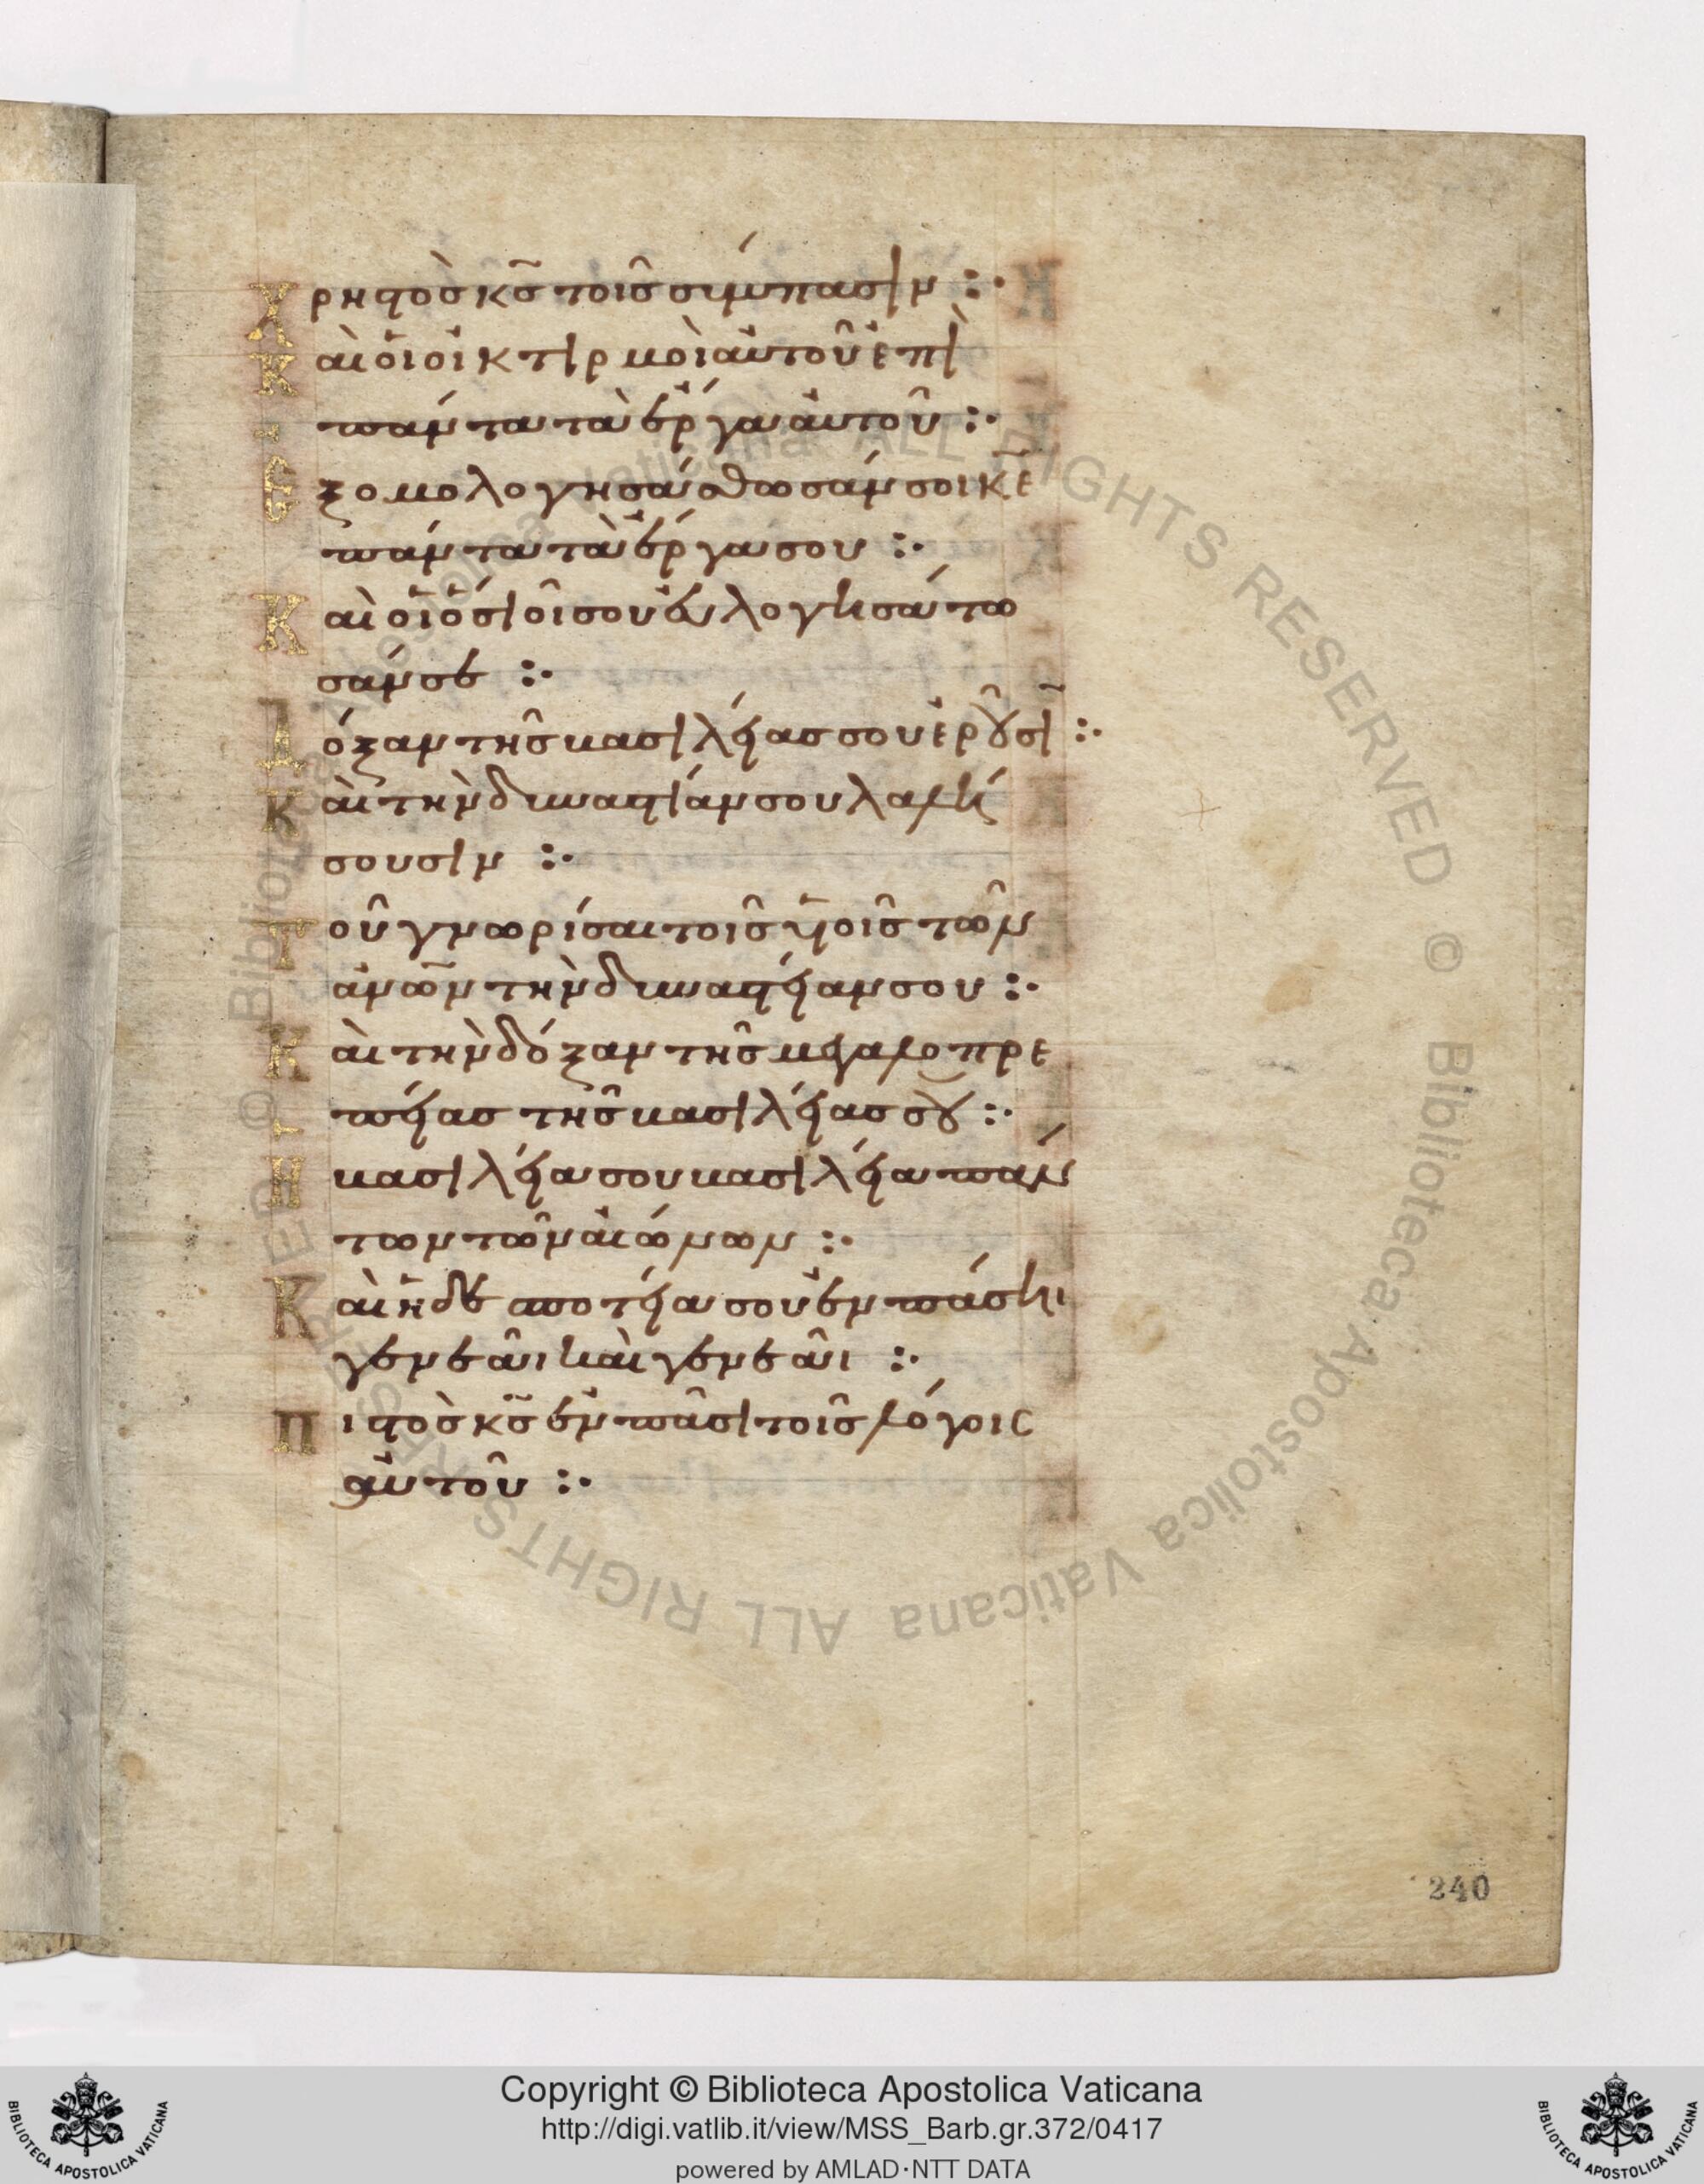 Χρηστὸσ κ̅σ̅ τοῖσ σύμπασιν :·
Καὶ ὁι οἰκτιρμοὶ ἀυτοῦ ἐπὶ
πάντα τὰ ἔργα ἀυτοῦ :·
Ἐξομολογησάσθωσάν σοι κ̅ε̅
πάντα τὰ ἔργα σου :·
Καὶ ὁι ὅσιοί σου ἐυλογησάτω
σάν σε :·
Δόξαν τῆσ βασιλείασ σου ἐροῦσι :·
Κὰι τὴν δυναστείαν σου λαλή
σουσιν :·
Τοῦ γνωρίσαι τοῖσ υἱοῖσ τῶν
ἀνων τὴν δυναστείαν σου :·
Κὰι τὴν δόξαν τῆσ μεγαλοπρε
πείασ τῆσ βασιλείασ σου :·
Ἡ βασιλεία σου βασιλεία πάν
των τῶν ἀιώνων :·
Κὰι ἡ δεσποτεία σου ἐν πάσηι
γενεᾶι κὰι γενεᾶι :·
Πιστὸσ κ̅σ̅ ἐν πᾶσι τοῖσ λόγοισ
ἀυτοῦ :·
240
© Biblioteca Apostolica Vaticana ALL RIGHTS RESERVED © Biblioteca Apostolica Vaticana ALL RIGHTS RESERVED
BIBLIOTECA APOSTOLICA VATICANA
Copyright © Biblioteca Apostolica Vaticana
http://digi.vatlib.it/view/MSS_Barb.gr.372/0417
powered by AMLAD·NTT DATA
BIBLIOTECA APOSTOLICA VATICANA